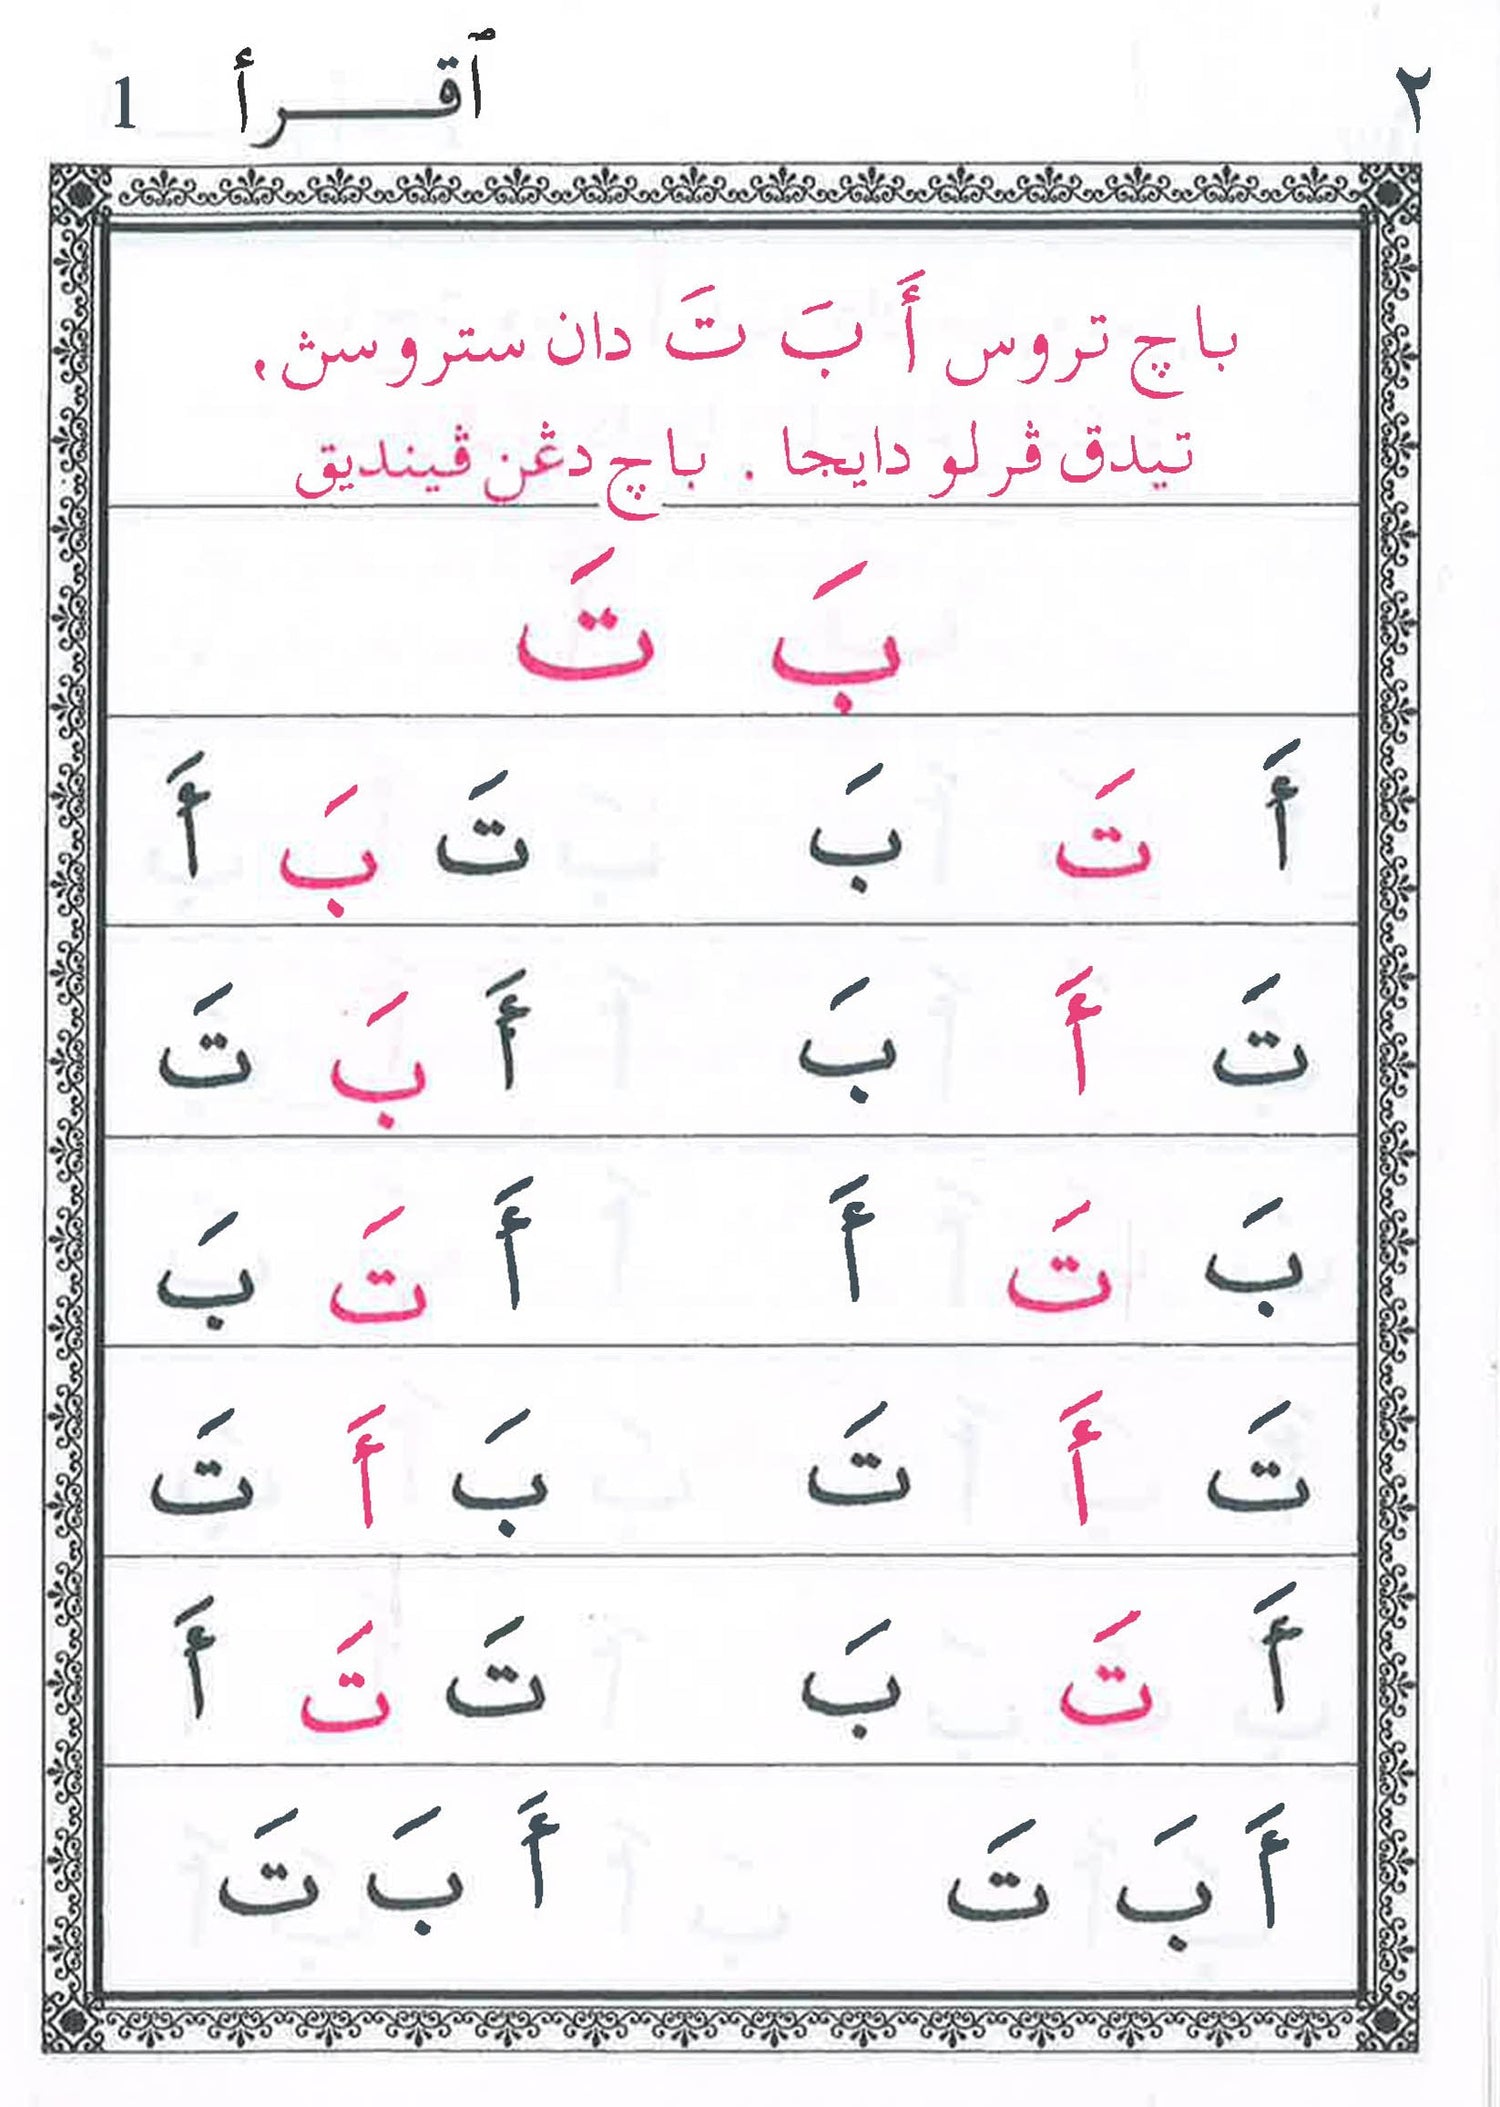 ٢ ٱقـــرأ 1
باچ تروس أَ بَ تَ دان ستروسڽ،
تيدق ڤرلو دايجا . باچ دڠن ڤينديق
بَ تَ
أَ تَ بَ تَ بَ أَ
تَ أَ بَ أَ بَ تَ
بَ تَ أَ أَ تَ بَ
تَ أَ تَ بَ أَ تَ
أَ تَ بَ تَ تَ أَ
أَ بَ تَ أَ بَ تَ